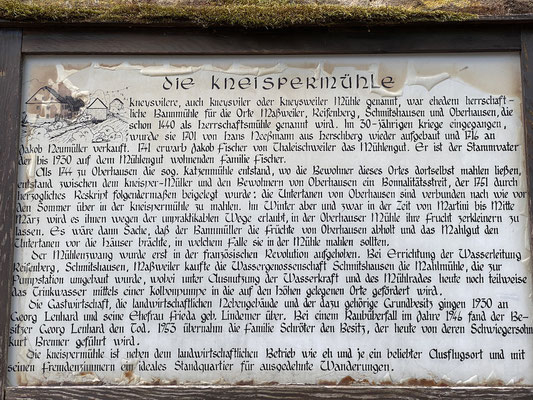 die kneispermühle
kneusvilere, auch kneusviler oder kneusweiler Mühle genannt, war ehedem herrschaft-
liche Bannmühle für die Orte Maßweiler, Reifenberg, Schmitshausen und Oberhausen, die
schon 1440 als Herrschaftsmühle genannt wird. Im 30-jährigen kriege eingegangen,
wurde sie 1701 von Hans Neeßmann aus herschberg wieder aufgebaut und 1716 an
Jakob Neumüller verkauft. 1741 erwarb Jakob Fischer von Thaleischweiler das Mühlengut. Er ist der Stammvater
der bis 1930 auf dem Mühlengut wohnenden Familie Fischer.
Als 1744 zu Oberhausen die sog. Katzenmühle entstand, wo die Bewohner dieses Ortes dortselbst mahlen ließen,
entstand zwischen dem kneisper-Müller und den Bewohnern von Oberhausen ein Bonnalitätsstreit, der 1751 durch
herzogliches Reskript folgendermaßen beigelegt wurde; die Untertanen von Oberhausen sind verbunden nach wie vor
den Sommer über in der kneispermühle zu mahlen. Im Winter aber und zwar in der Zeit von Martini bis Mitte
März wird es ihnen wegen der unpraktikablen Wege erlaubt, in der Oberhauser Mühle ihre Frucht zerkleinern zu
lassen. Es wäre dann Sache, daß der Bannmüller die Früchte von Oberhausen abholt und das Mahlgut den
Untertanen vor die Häuser brächte, in welchem Falle sie in der Mühle mahlen sollten.
Der Mühlenzwang wurde erst in der französischen Revolution aufgehoben. Bei Errichtung der Wasserleitung
Reifenberg, Schmitshausen, Maßweiler kaufte die Wassergenossenschaft Schmitshausen die Mahlmühle, die zur
Pumpstation umgebaut wurde, wobei unter Ausnutzung der Wasserkraft und des Mühlrades heute noch teilweise
das Trinkwasser mittels einer Kolbenpumpe in die auf den höhen gelegenen Orte gefördert wird.
Die Gastwirtschaft, die landwirtschaftlichen Nebengebäude und der dazu gehörige Grundbesitz gingen 1930 an
Georg Lenhard und seine Ehefrau Frieda geb. Lindemer über. Bei einem Raubüberfall im Jahre 1946 fand der Be-
sitzer Georg Lenhard den Tod. 1953 übernahm die Familie Schröter den Besitz, der heute von deren Schwiegersohn
kurt Brenner geführt wird.
Die kneispermühle ist neben dem landwirtschaftlichen Betrieb wie eh und je ein beliebter Ausflugsort und mit
seinen Fremdenzimmern ein ideales Standquartier für ausgedehnte Wanderungen.